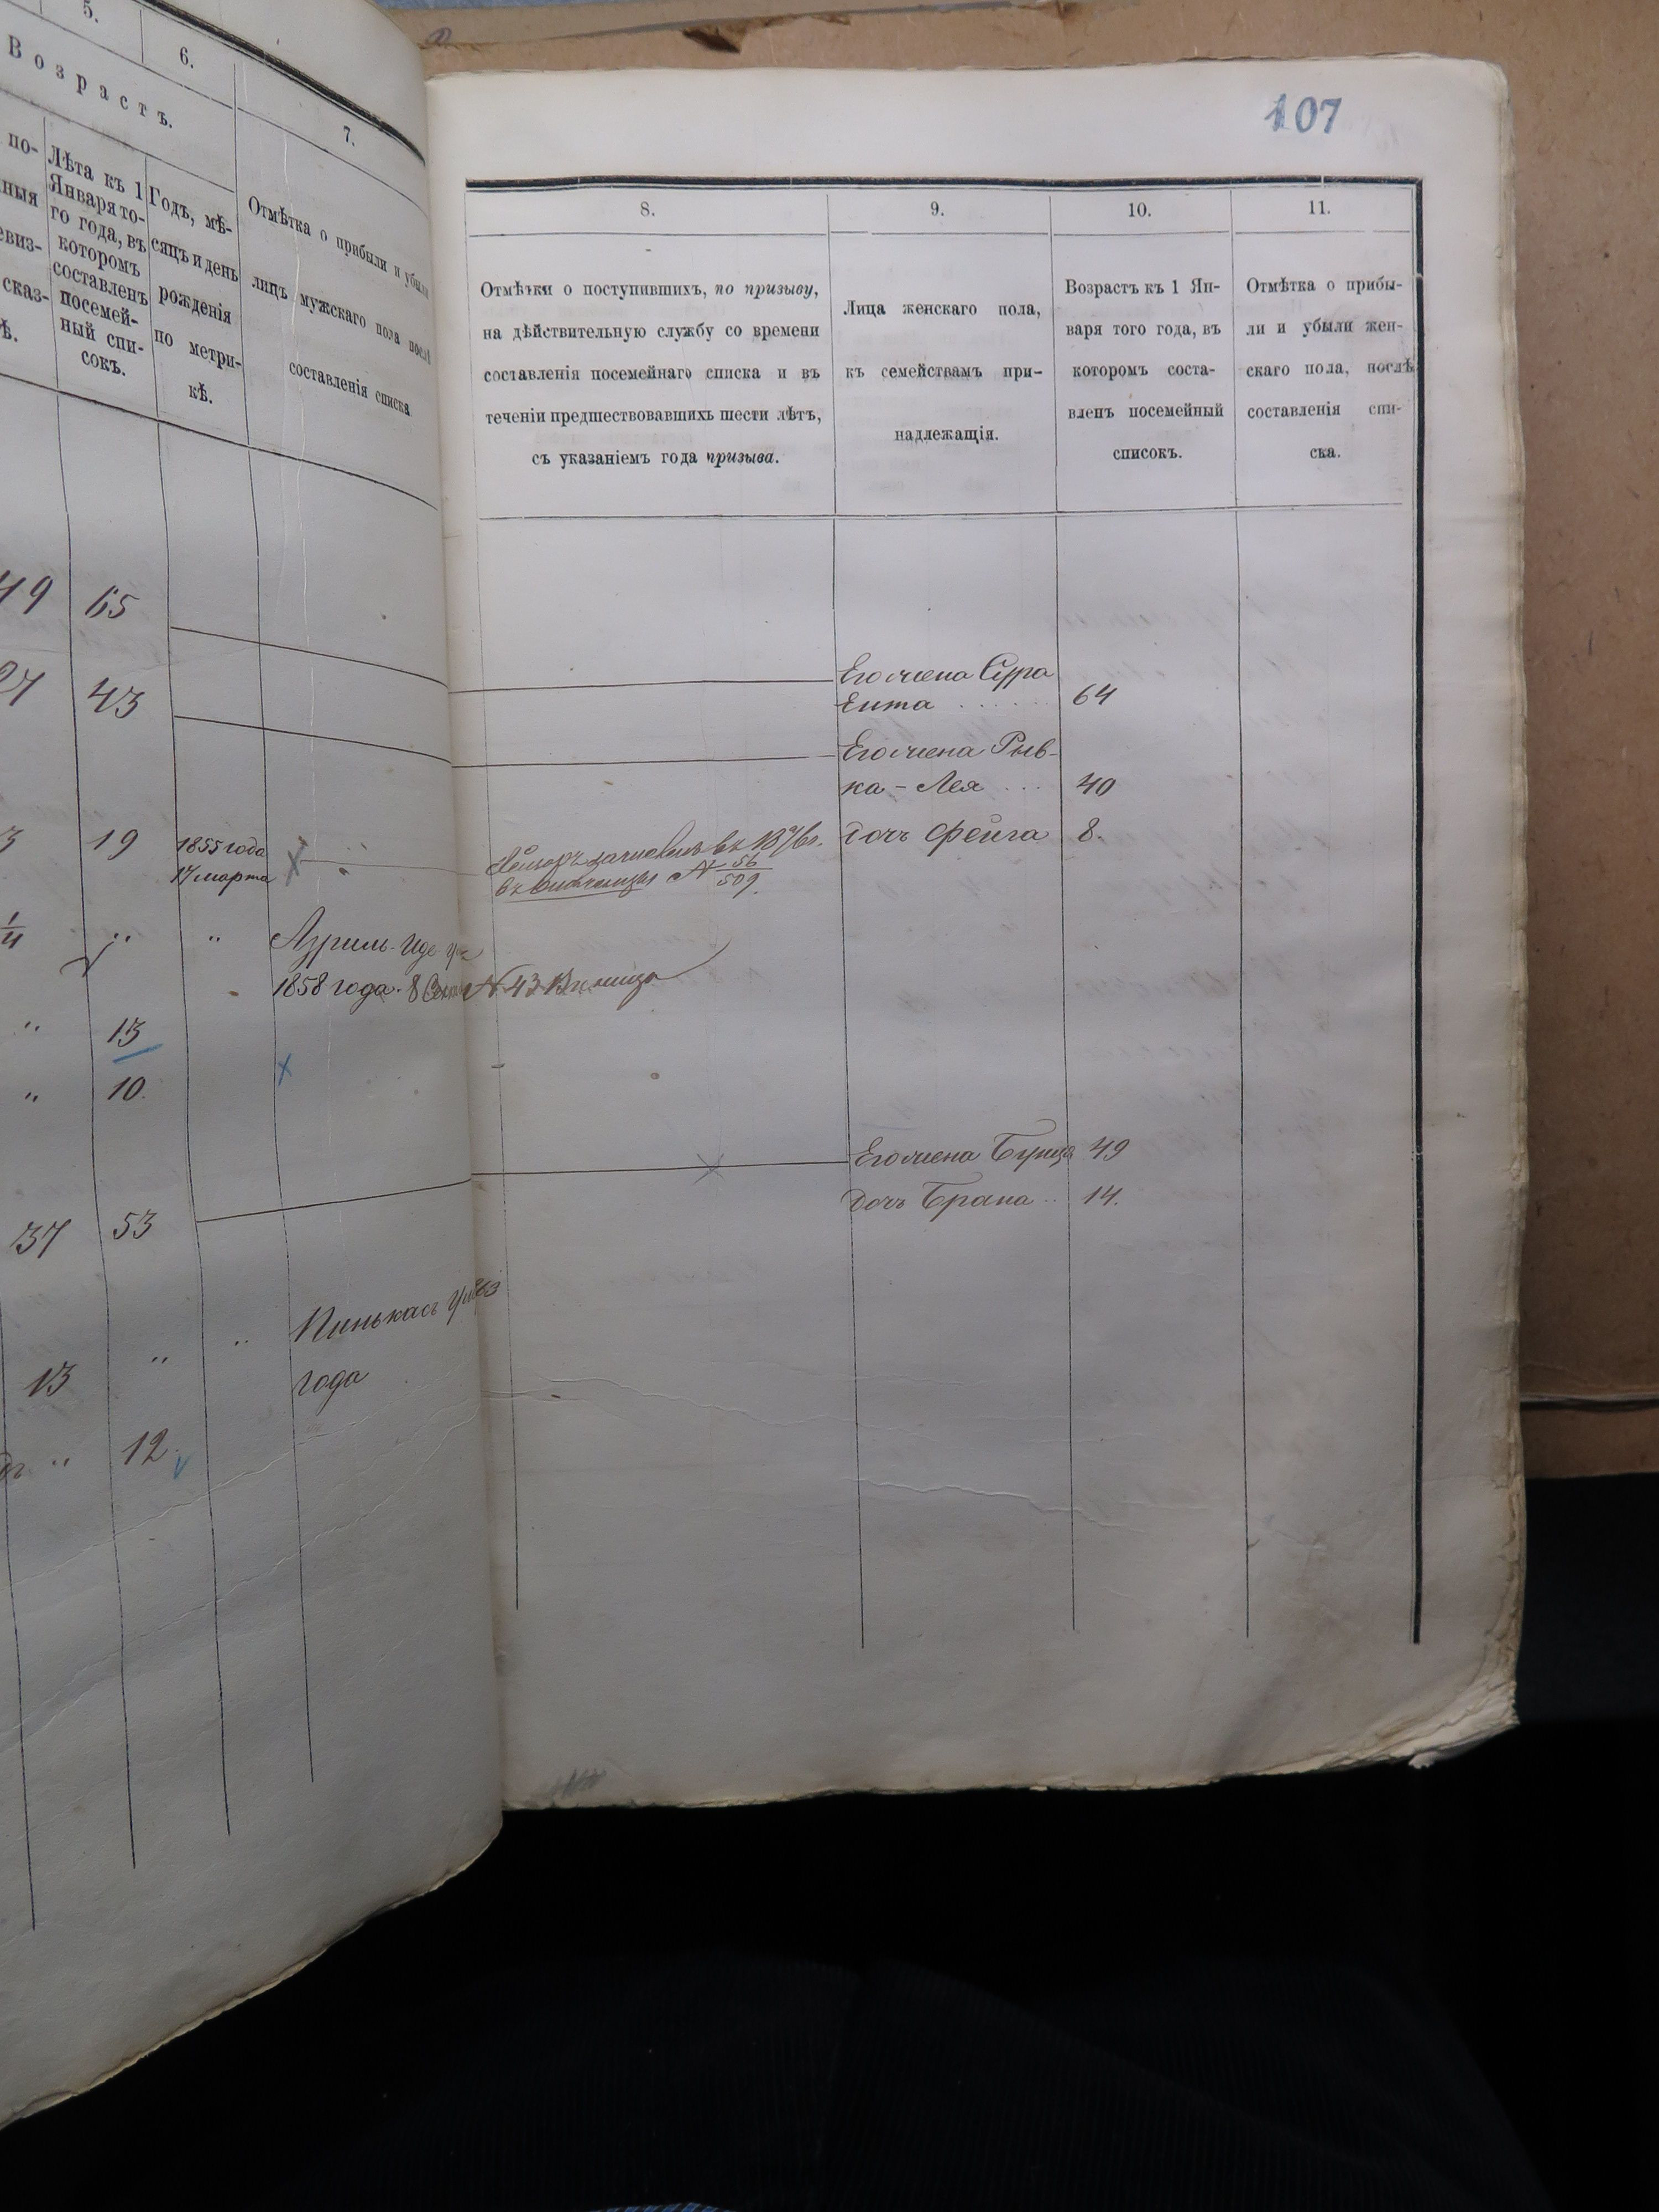 107
5.
6.
7.
Возрастъ.
по-
ныя
евиз-
сказ-
ѣ.
Лѣта къ 1
Января то-
го года, въ
которомъ
составленъ
посемей-
ный спи-
сокъ.
Годъ, мѣ-
сяцъ и день
рожденія
по метри-
кѣ.
Отмѣтка о прибыли и убыли
лицъ мужскаго пола послѣ
составленія списка
8.
9.
10.
11.
Отмѣтки о поступившихъ, по призыву,
на дѣйствительную службу со времени
составленія посемейнаго списка и въ
теченіи предшествовавшихъ шести лѣтъ,
съ указаніемъ года призыва.
Лица женскаго пола,
къ семействамъ при-
надлежащія.
Возрастъ къ 1 Ян-
варя того года, въ
которомъ соста-
вленъ посемейный
списокъ.
Отмѣтка о прибы-
ли и убыли жен-
скаго пола, послѣ
составленія спи-
ска.
49 65
Его жена Сура
Ента 64
27 43
Его жена Рыв-
ка - Лея 40
3 19 1855 года
17 марта
въ 56
509.
дочь Фейга 8.
" " Азриль
1858 года. 8 N 43
" 13
" 10.
Его жена Буня 49
дочь Брана 14.
37 53
13 " " Пинькасъ
года
" 12.